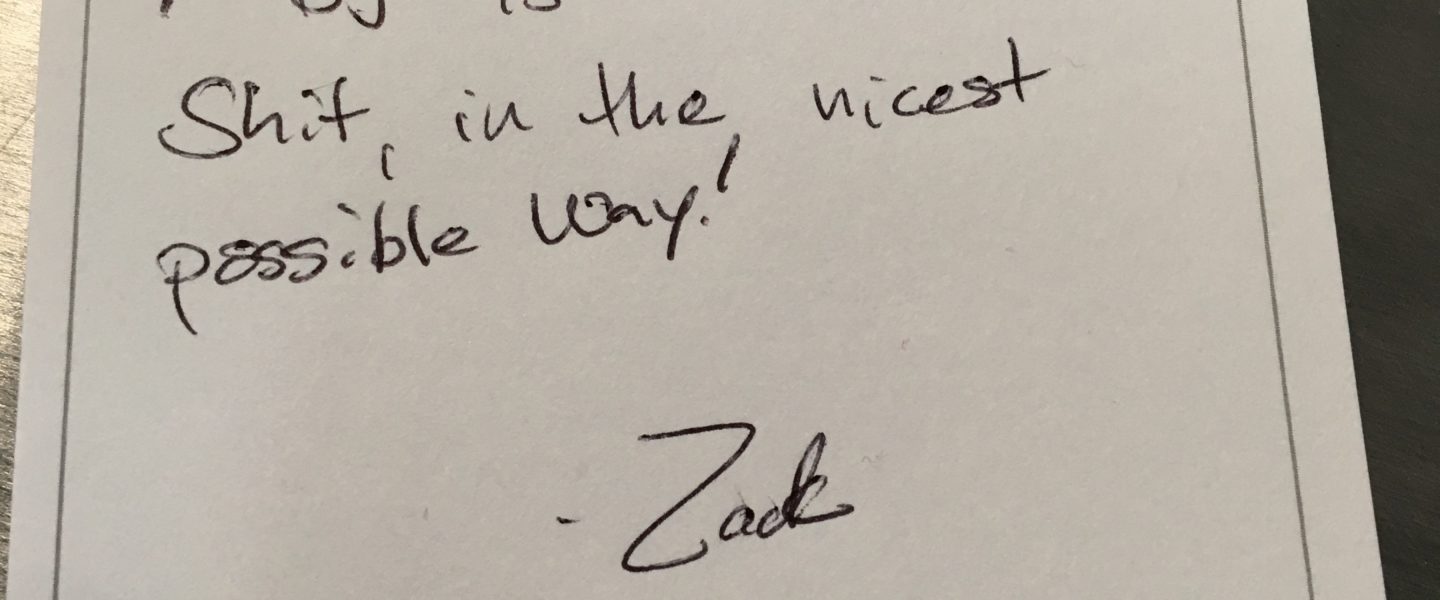 is
Shit, in the nicest
possible way!
- Zack